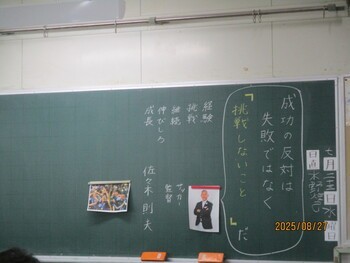 成功の反対は
失敗ではなく
『挑戦しないこと』だ
経験
挑戦
継続
伸びしろ
成長
サッカー
監督
佐々木則夫
日直
水
曜
日
2025/08/27